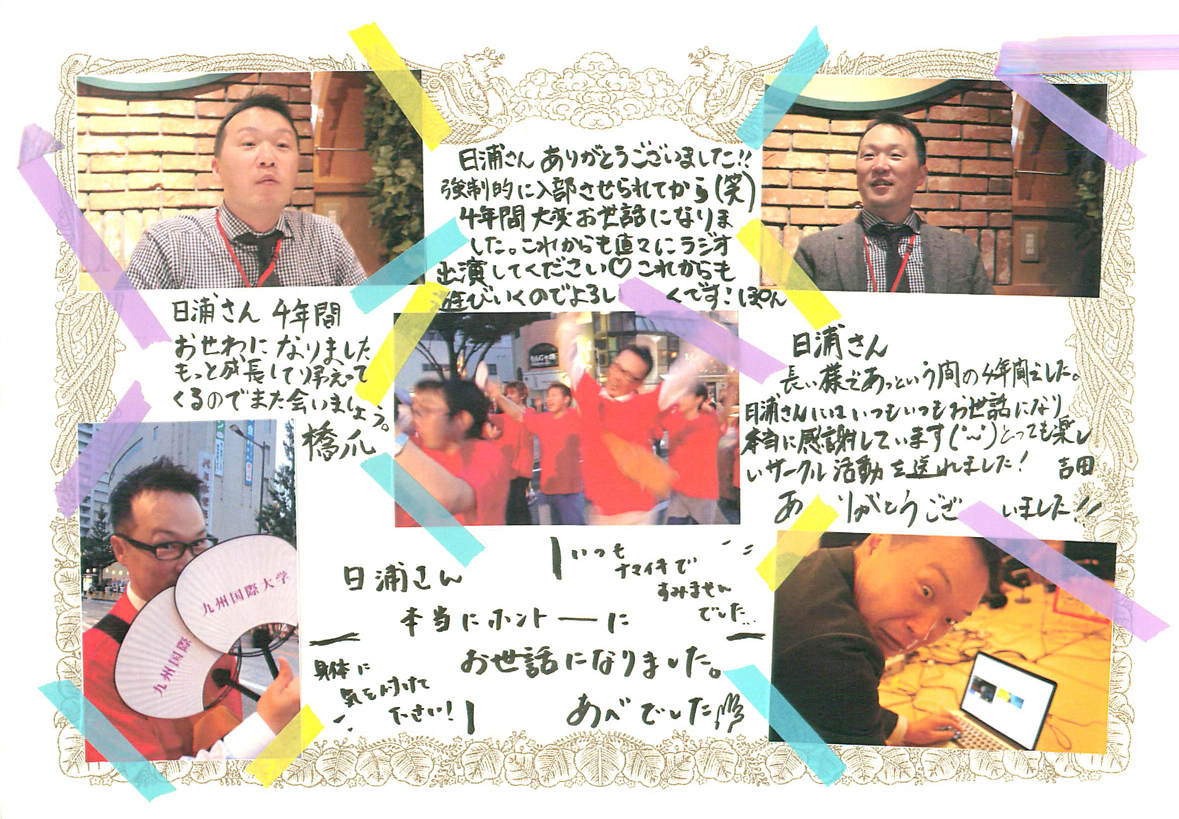 日浦さん ありがとうございました!!
強制的に入部させられてから(笑)
4年間大変お世話になりま
した。これからも直でにラジオ
出演してください♡これからも
遊びいくのでよろしくです! ぽん
日浦さん 4年間
おせわになりました
もっと成長して
くるのでまた会いましょう。
橋爪
日浦さん
長い様であっという間の4年間でした。
日浦さんにはいつもいつもお世話になり
本当に感謝しています(^~^)とっても楽し
いサークル活動を送れました! 吉田
ありがとうございました!!
日浦さん
本当にホントーに
お世話になりました。
あべでした
いつも
ナマイキで
すみません
でした…
身体に
気を付けて
ださい!
九州国際大学
九州国際